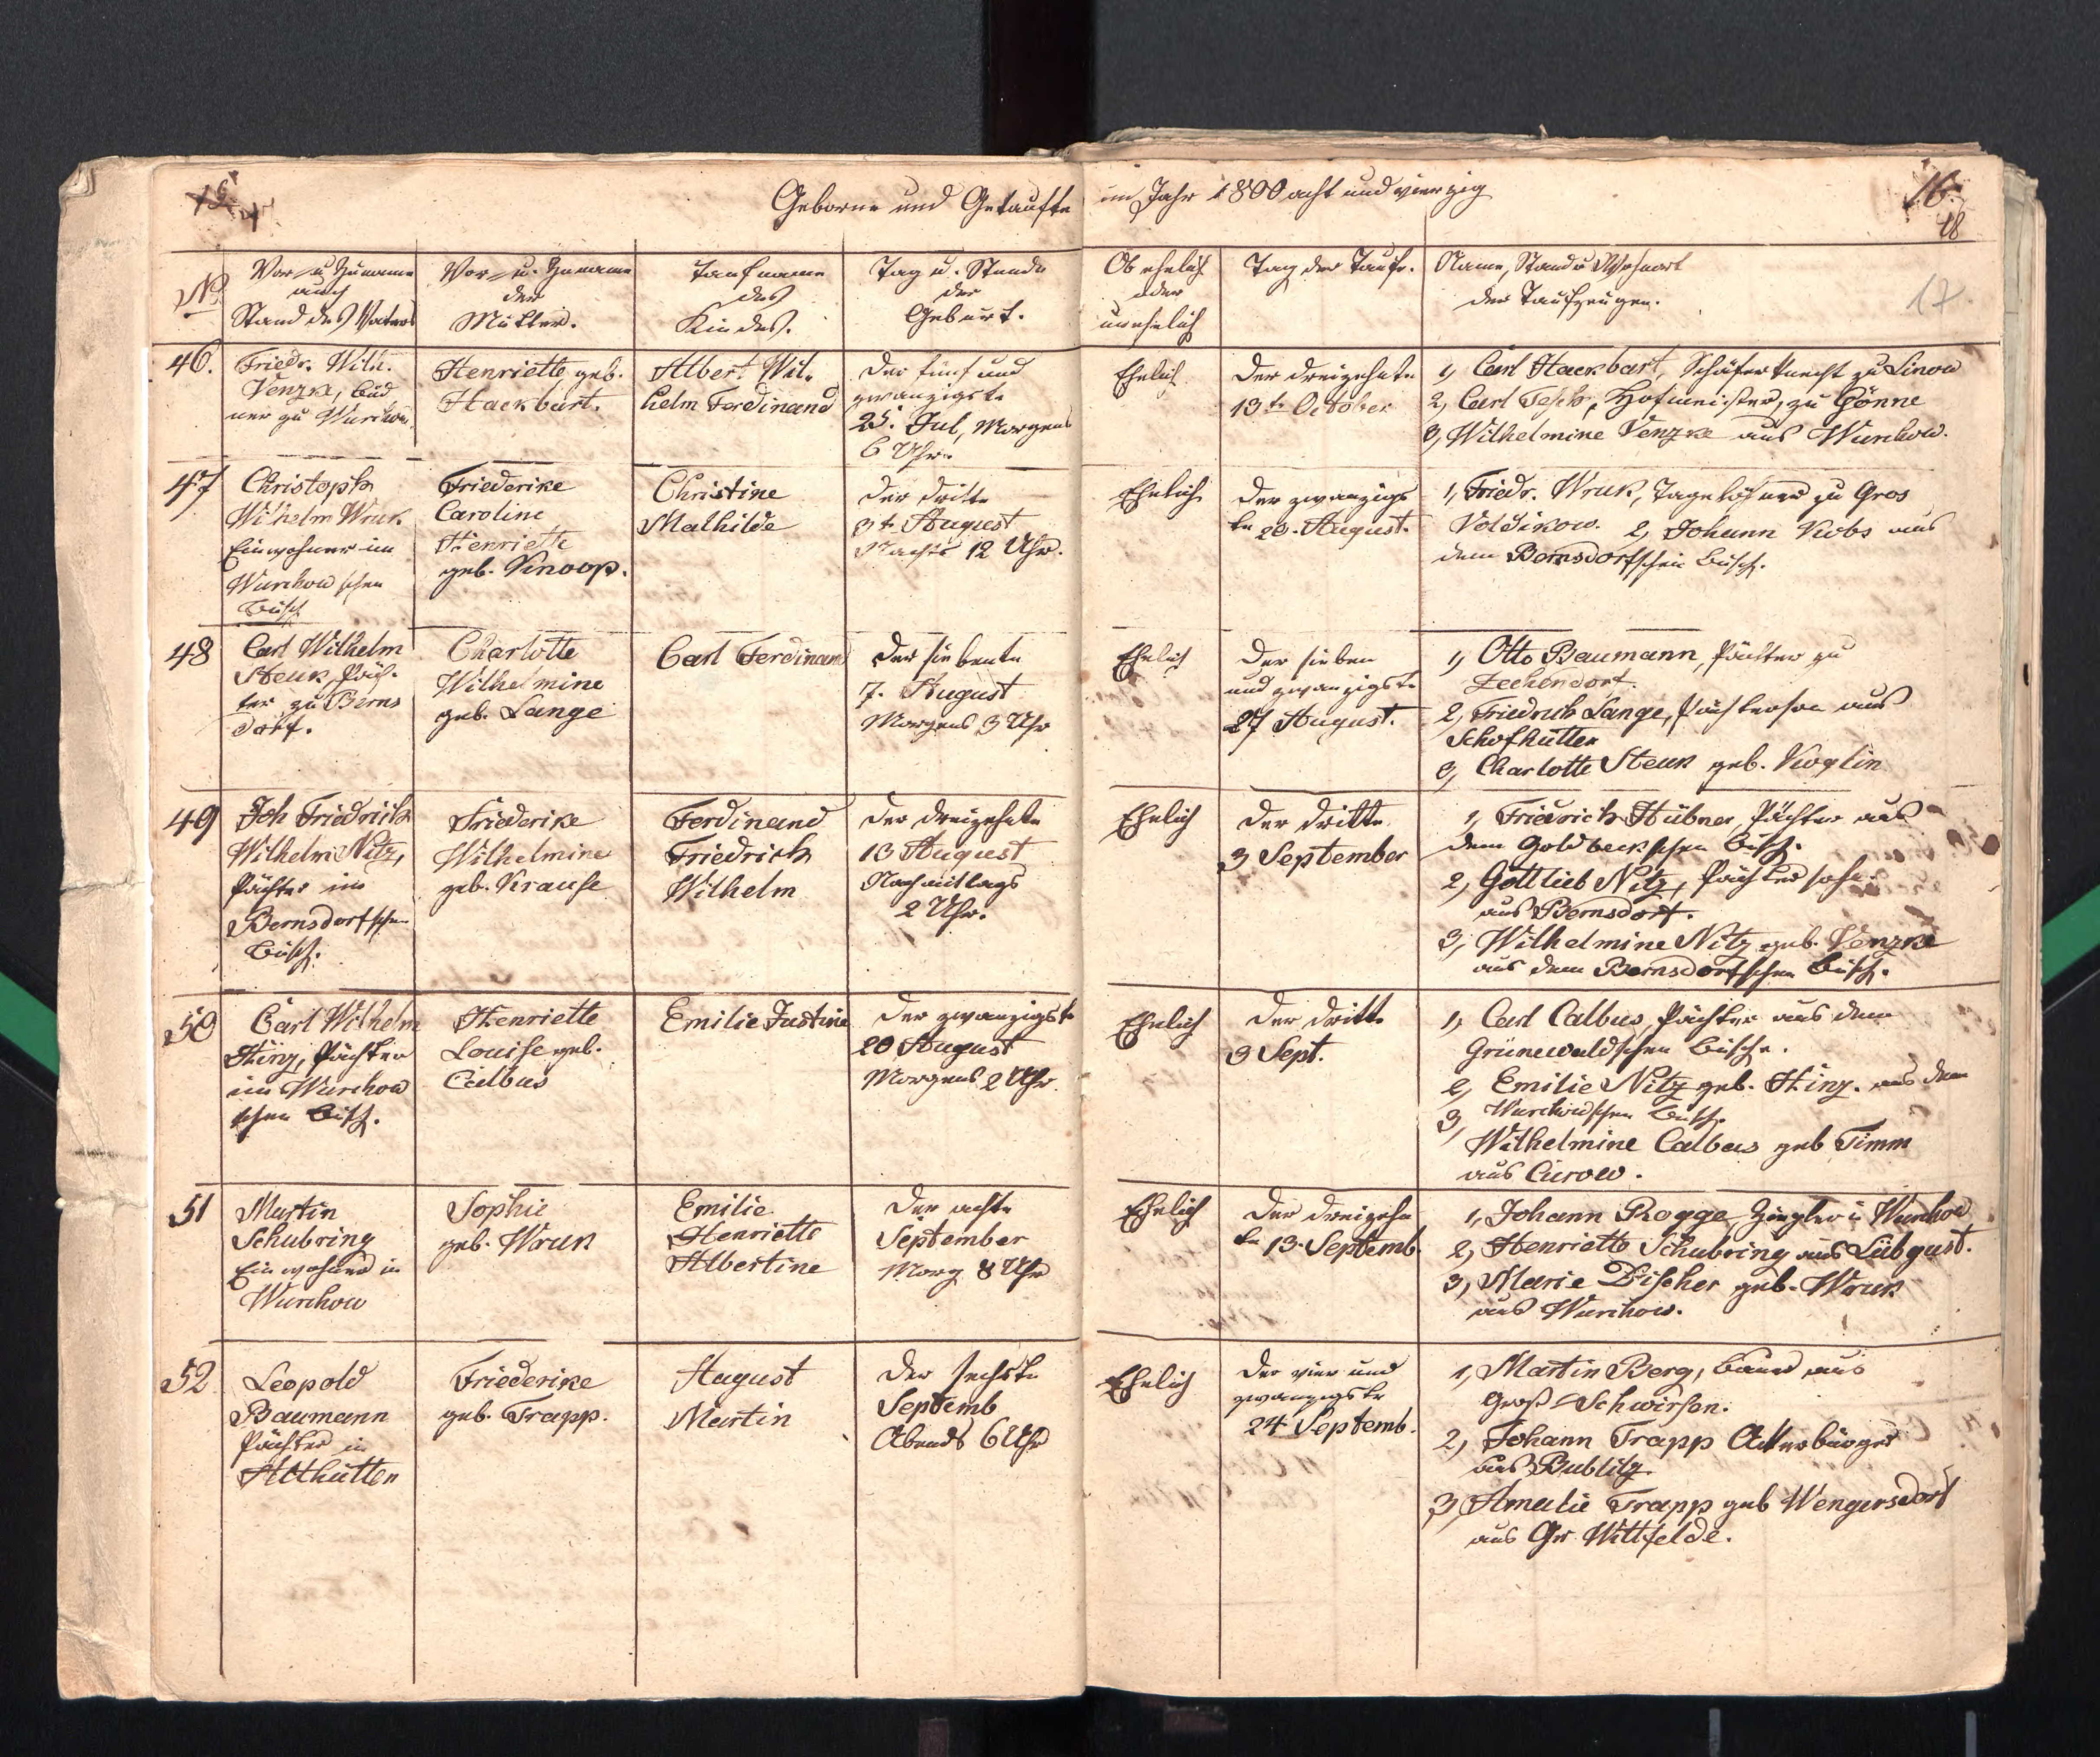 Geborne und Getaufte im Jahr 1800 acht und vierzig
16.
18
17
No.
Vor- u. Zuname
auch
Stand des Vaters
Vor- u. Zuname
der
Mutter.
Taufname
des
Kindes.
Tag u. Stunde
der
Geburt.
Ob ehelich
oder
unehelich
Tag der Taufe.
Name, Stand u. Wohnort
der Taufzeugen.
46.
Friedr. Wilh.
Venzke, Büd
ner zu Wurchow
Henriette geb.
Hackbart.
Albert Wil-
helm Ferdinand
Der fünf und
zwanzigste
25. Jul, Morgens
6 Uhr.
Ehelich
Der dreizehnte
13te October
1, Carl Hackbart, Schäferknecht zu Linow
2, Carl Tesch, Hofmeister, zu Gönne
3, Wilhelmine Venzke aus Wurchow.
47
Christoph
Wilhelm Wruk
Einwohner im
Wurchowschen
Busch
Friederike
Caroline
Henriette
geb. Knoop.
Christine
Mathilde
Der dritte
3te August
Nachts 12 Uhr.
Ehelich
Der zwanzigs
te 20. August.
1, Friedr. Wruk, Tagelöhner zu Gros
Voldikow. 2, Johann Krobs aus
dem Bernsdorfschen Busch.
48
Carl Wilhelm
Steuk, Päch-
ter zu Berns
dorf.
Charlotte
Wilhelmine
geb. Lange
Carl Ferdinand
Der siebente
7. August
Morgens 3 Uhr
Ehelich
Der sieben
und zwanzigste
27 August.
1, Otto Baumann, Pächter zu
Zechendorf.
2, Friedrich Lange, Pächtersohn aus
Schofhütten
3, Charlotte Steuk geb. Koglin
49
Joh Friedrich
Wilhelm Nitz,
Pächter im
Bernsdorfschen
Busch.
Friederike
Wilhelmine
geb. Krause
Ferdinand
Friedrich
Wilhelm
Der dreizehnte
13 August
Nachmittags
2 Uhr.
Ehelich
Der dritte
3 September
1, Friedrich Hübner, Pächter aus
dem Goldbeckschen Busch.
2, Gottlieb Nitz, Pächtersohn
aus Bernsdorf.
3, Wilhelmine Nitz geb. Venzke
aus dem Bernsdorfschen Busch.
50
Carl Wilhelm
Hinz, Pächter
im Wurchow
schen Busch.
Henriette
Louise geb.
Calbus
Emilie Justine
Der zwanzigste
20 August
Morgens 2 Uhr.
Ehelich
Der dritte
3 Sept.
1, Carl Calbus, Pächter aus dem
Grünewaldschen Busche.
2, Emilie Nitz geb. Hinz. aus dem
Wurchowschen Busche
3,
Wilhelmine Calbus geb Timm
aus Curow.
51
Martin
Schubring
Einwohner in
Wurchow
Sophie
geb. Wruk
Emilie
Henriette
Albertine
Der achte
September
Morg 8 Uhr
Ehelich
Der dreizehn
te 13. Septemb.
1, Johann Rogge, Ziegler in Wurchow
2, Henriette Schubring aus Lübgust.
3, Marie Discher geb. Wruk
aus Wurchow.
52
Leopold
Baumann
Pächter in
Althütten
Friederike
geb. Trapp.
August
Martin
Der sechste
Septemb
Abends 6 Uhr
Ehelich
Der vier und
zwanzigste
24 Septemb.
1, Martin Berg, Bauer aus
Groß-Schwirsen.
2, Johann Trapp Ackerbürger
aus Bublitz.
3, Amalie Trapp geb Wengersdorf
aus Gr. Wittfelde.